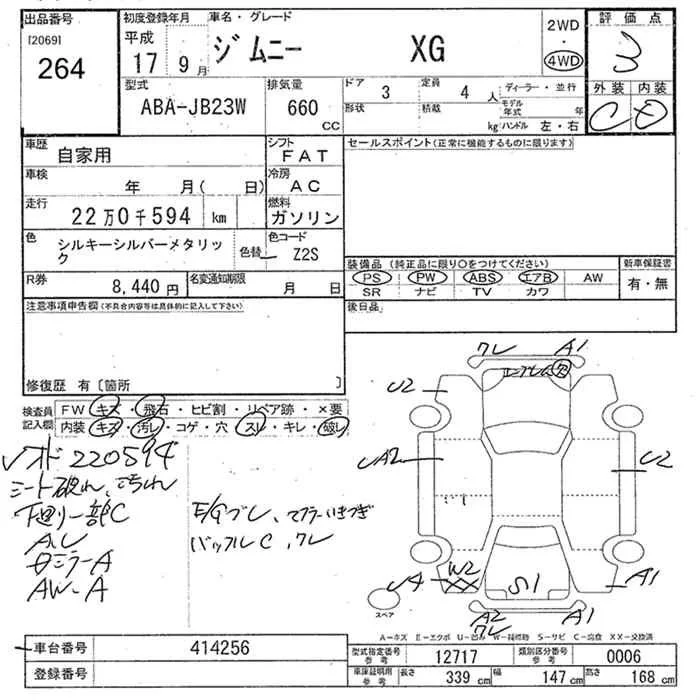 出品番号
[2069]
264
初度登録年月
平成
17 9月
車名・グレード
ジムニー XG
2WD
・
4WD
評価点
3
外装 内装
C D
型式
ABA-JB23W
排気量
660 CC
ドア 3
定員 4人
形状
積載 kg
ディーラー・並行
モデル年式 年
ハンドル 左・右
車歴
自家用
シフト
FAT
車検
年 月( 日)
冷房
AC
走行
22万0千594 km
燃料
ガソリン
色
シルキーシルバーメタリック
色替
色コード
Z2S
R券
8,440円
名変通知期限
月 日
セールスポイント(正常に機能するものに限ります)
装備品 (純正品に限り○をつけてください)
PS PW ABS エアB AW
SR ナビ TV カワ
新車保証書
有・無
後日品
注意事項申告欄(不具合内容等は具体的に記入して下さい)
修復歴 有〔箇所 〕
検査員記入欄
FW キズ・飛石・ヒビ割・リペア跡・×要
内装 キズ・汚レ・コゲ・穴・スレ・キレ・破レ
220594
シート破れ、汚れ
下廻り一部C
AW-A
E/Gブレ、マフラーいきつぎ
バッフルC、クレ
クレ A1
U2
A2
U2
W2
XX
S1
A1
A2
クレ
A1
スペア
A-キズ E-エクボ U-凹み W-補修跡 S-サビ C-腐食 XX-交換済
車台番号
414256
登録番号
型式指定番号
参考
12717
類別区分番号
参考
0006
車庫証明用
参考
長さ 339 cm
幅 147 cm
高さ 168 cm